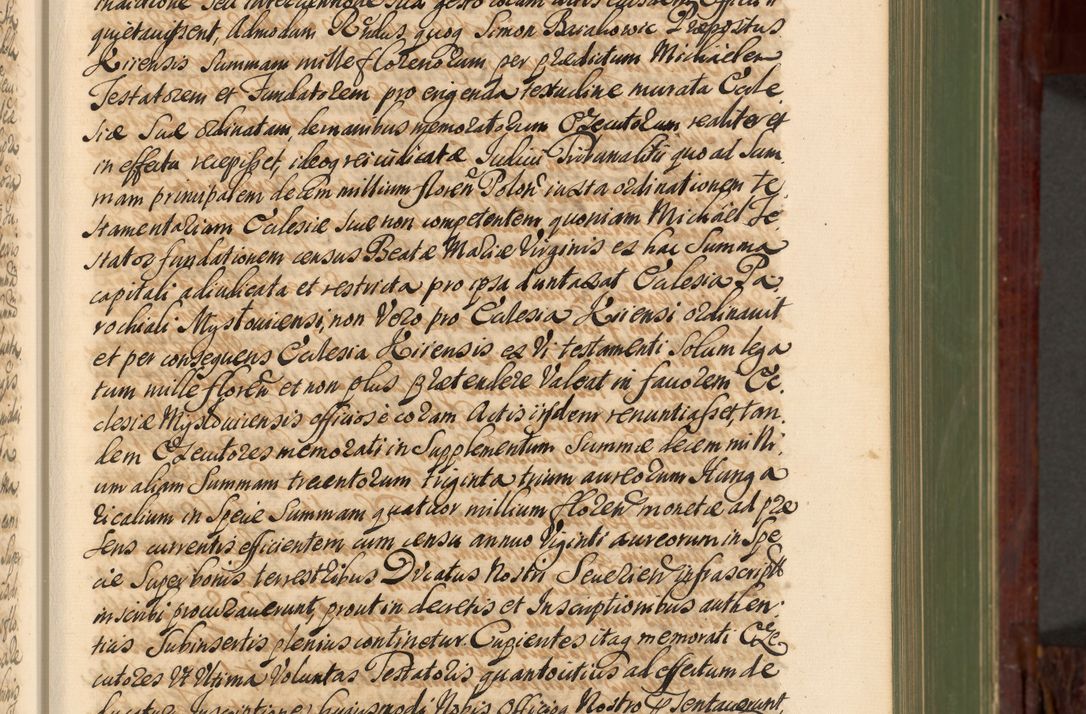 quietavissent, Admodum Rndus quoq Simon Barahowic Præpositus
Kirensis Summam mille florenorum per prædictum Michaelem
Testatorem et Fundatorem pro erigenda testudine murata Eccle
siæ Suæ ordinatam, de manibus memoratorum Exeutorum realiter et
in effectu recepisset, ideoq rei iudicatæ Iudicii Tribunalitii quo ad Sum,
mam principalem decem millium floren Polon iuxta ordinationem te
stamentariam Ecclesiæ suæ non competentem, quoniam Michael Te,
stator fundationem census Beatæ Mariæ Virginis ex hac Summa
capitali adiudicata et restricta pro ipsa duntaxat Ecclesia Pa,
rochiali Mystouicensi, non Vero pro Ecclesia Kirensi ordinauit
et per consequens Ecclesia Kirensis ex Vi testamenti Solum lega
tum mille floren et non plus prætendere Valeat in fauorem Ec,
clesiæ Mysouicensis officiose coram Actis iisdem renuntiasset, tan,
dem Exeutores memorati in Supplementum Summæ decem milli,
um aliam Summam trecentorum triginta trium aureorum Hunga
ricalium in Specie Summam quatuor millium floren monetæ ad præ
sens currentis efficientem cum censu annuo Viginti aureorum in Spe
cie Super bonis terrestribus Ducatus Nostri Seuerien infrascriptis
inscribi procurauerunt, prout in decretis et Inscriptionibus authen,
ticis Subinsertis plenius continetur. Cupientes itaq memorati Exe
cutores Vt Vltima Voluntas Testatoris quantocitius ad effectum de